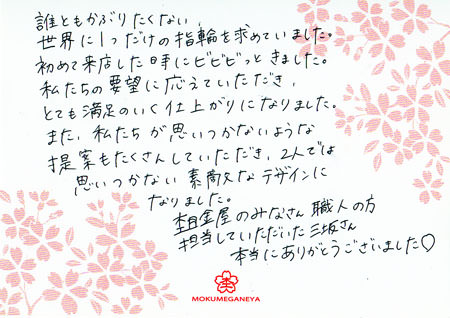 誰ともかぶりたくない、
世界に1つだけの指輪を求めていました。
初めて来店した時にビビビっときました。
私たちの要望に応えていただき、
とても満足のいく仕上がりになりました。
また、私たちが思いつかないような
提案もたくさんしていただき、2人では
思いつかない素敵なデザインに
なりました。
杢目金屋のみなさん 職人の方
担当していただいた三坂さん
本当にありがとうございました♡
MOKUMEGANEYA